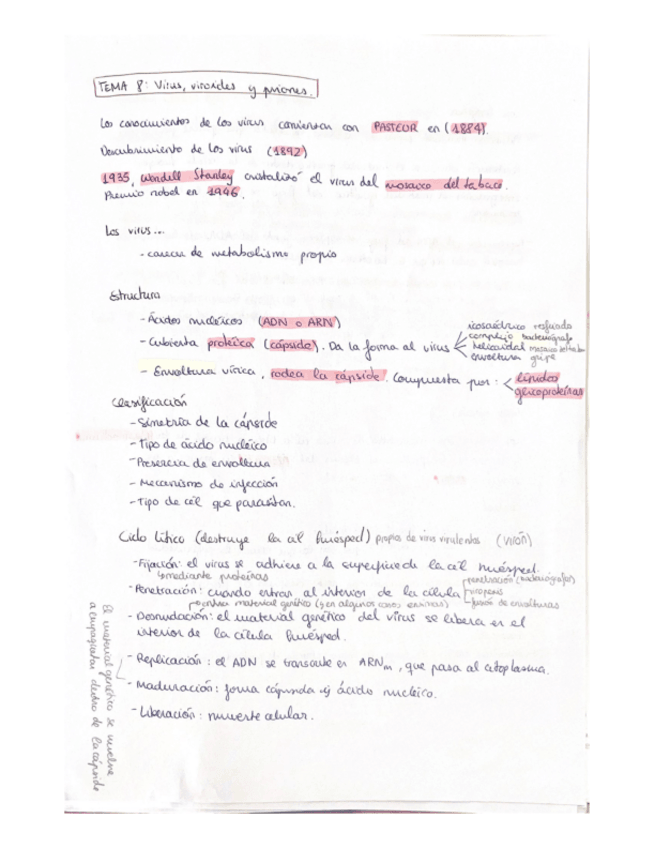 TEMA 8: Virus, viroides y priones.
Los conocimientos de los virus comienzan con PASTEUR en (1884).
Descubrimiento de los virus (1892)
1935, Wendell Stanley cristalizó el virus del mosaico del tabaco.
Premio nobel en 1946.
Los virus...
- carecen de metabolismo propio
Estructura
- Ácidos nucleicos (ADN o ARN)
- Cubierta proteica (cápside). Da la forma al virus
icosaédrico resfriado
complejo bacteriófago
helicoidal mosaico del tabaco
envoltura gripe
- Envoltura vírica, rodea la cápside. Compuesta por:
lípidos
glicoproteínas
Clasificación
- Simetría de la cápside
- Tipo de ácido nucleico
- Presencia de envoltura
- Mecanismo de infección
- Tipo de cél que parasitan.
Ciclo lítico (destruye la cél huésped) propios de virus virulentos (virión)
- Fijación: el virus se adhiere a la superficie de la cél huésped.
mediante proteínas
- Penetración: cuando entran al interior de la célula
penetración (bacteriófagos)
fusión de envolturas
entra material genético (y en algunos casos enzimas)
- Desnudación: el material genético del virus se libera en el
interior de la célula huésped.
- Replicación: el ADN se transcribe en ARNm, que pasa al citoplasma.
- Maduración: forma cápsida y ácido nucleico.
- Liberación: muerte celular.
El material genético se vuelve
a empaquetar dentro de la cápside